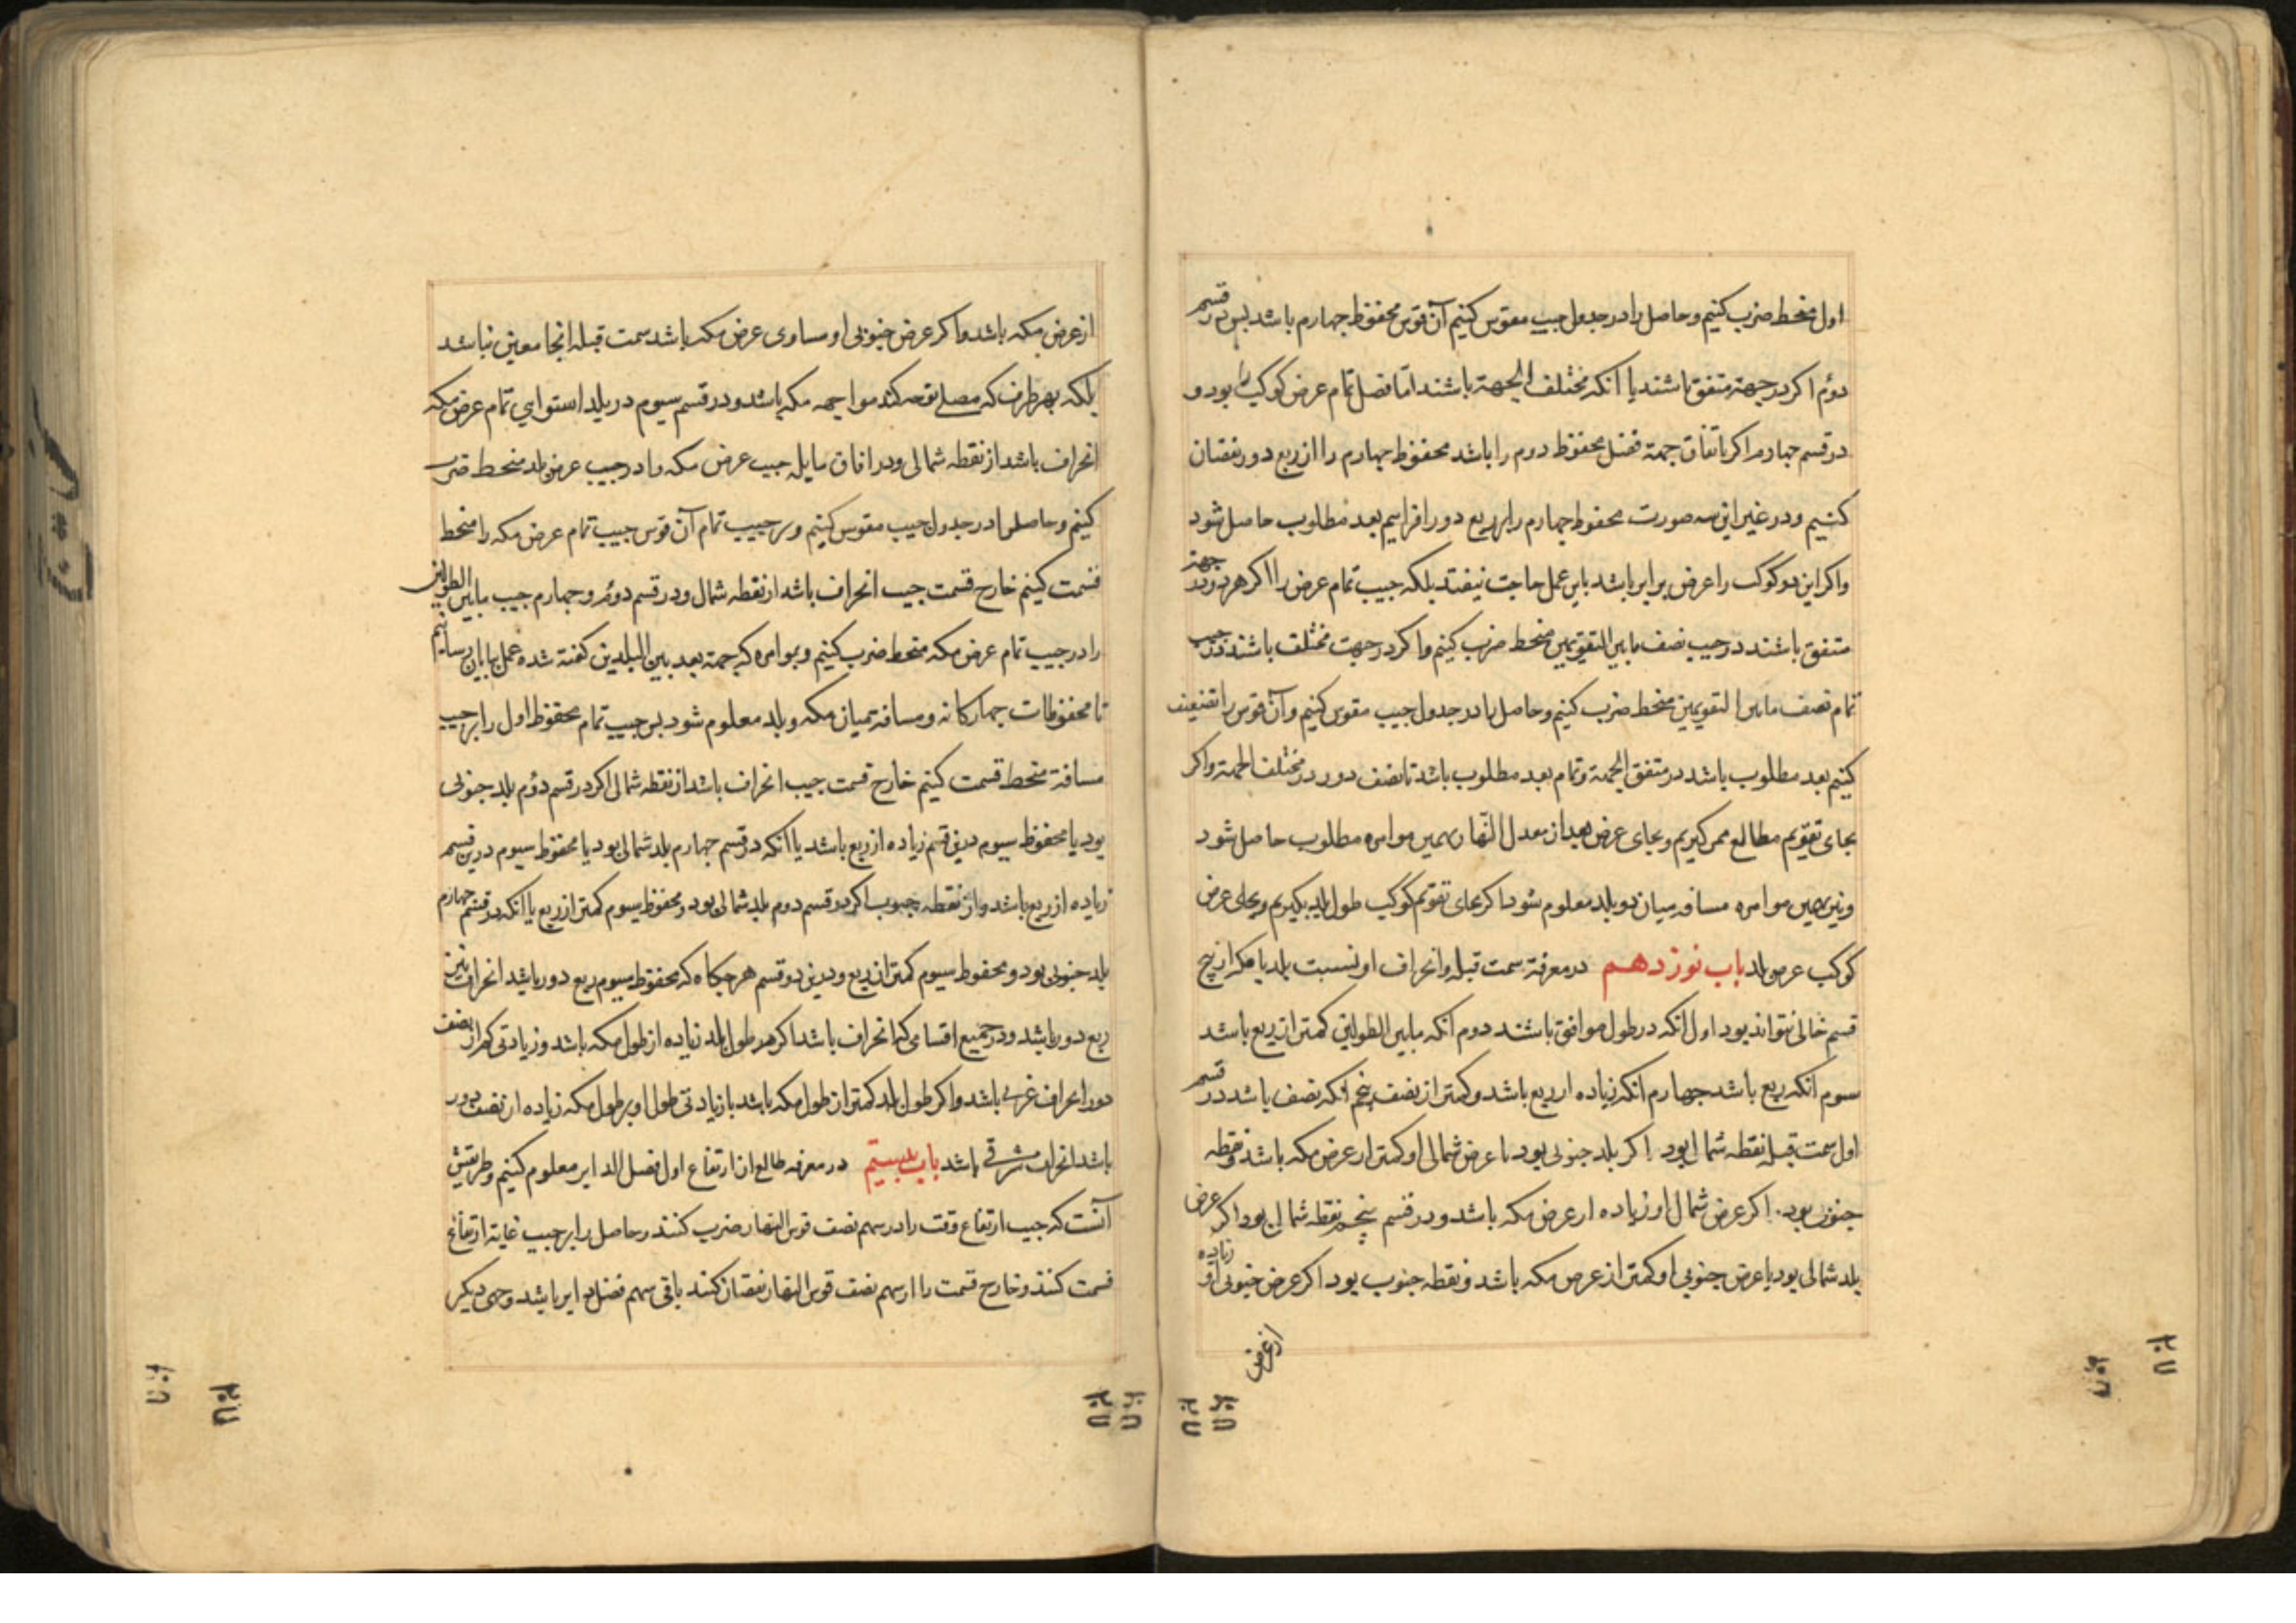 اول منحط ضرب کنیم و حاصل را در جدول جیب مقوس کنیم آن قوس محفوظ چهارم باشد پس در قسم
دوم اکر در جهة متفق باشند یا انکه مختلف الجهة باشند اما فضل تمام عرض کوکب را بود و
در قسم چهارم اکر باتفاق جهة فضل محفوظ دوم را باشد محفوظ چهارم را از ربع دور نقصان
کنیم و در غیر این سه صورت محفوظ چهارم را بر ربع دور افزاییم بعد مطلوب حاصل شود
واکر این دو کوکب را عرض برابر باشد باین عمل حاجت نیفتد بلکه جیب تمام عرض را اکر هر دو در جهة
متفق باشند در جیب نصف مابین التقویمین منحط ضرب کنیم واکر در جهت مختلف باشند در جیب
تمام نصف مابین التقویمین منحط ضرب کنیم و حاصل را در جدول جیب مقوس کنیم و آن قوس را تضعیف
کنیم بعد مطلوب باشد در متفق الجهة و تمام بعد مطلوب باشد تا نصف دور در مختلف الجهة واکر
بجای تقویم مطالع ممر کیریم و بجای عرض بعد از معدل النهار بهمین موامره مطلوب حاصل شود
و نیز بهمین موامره مسافه میان دو بلد معلوم شود اکر بجای تقویم کوکب طول بلد بکیریم و بجای عرض
کوکب عرض بلد باب نوزدهم در معرفة سمت قبله و انحراف او نسبت بلد با مکه از پنج
قسم خالی نتواند بود اول انکه در طول موافق باشند دوم انکه مابین الطولین کمتر از ربع باشد
سوم انکه ربع باشد چهارم انکه زیاده از ربع باشد و کمتر از نصف پنجم انکه نصف باشد در قسم
اول سمت قبله نقطه شمال بود اکر بلد جنوبی بود یا عرض شمالی او کمتر از عرض مکه باشد و نقطه
جنوب بود اکر عرض شمال او زیاده از عرض مکه باشد و در قسم پنجم نقطه شمال بود اکر عرض
بلد شمالی بود یا عرض جنوبی او کمتر از عرض مکه باشد و نقطه جنوب بود اکر عرض جنوبی او زیاده
از عرض
از عرض مکه باشد واکر عرض جنوبی او مساوی عرض مکه باشد سمت قبله انجا معین نباشد
بلکه بهر طرف که مصلے توجه کند مواجهه مکه باشد و در قسم سیوم در بلد استوایی تمام عرض مکه
انحراف باشد از نقطه شمالی و در افاق مایله جیب عرض مکه را در جیب عرض بلد منحط ضرب
کنیم و حاصل را در جدول جیب مقوس کنیم و بر جیب تمام آن قوس جیب تمام عرض مکه را منحط
قسمت کنیم خارج قسمت جیب انحراف باشد از نقطه شمال و در قسم دوم و چهارم جیب مابین الطولین
را در جیب تمام عرض مکه منحط ضرب کنیم و بموامره که جهة بعد بین البلدین کفته شده عمل بپایان رسانیم
تا محفوظات چهارکانه و مسافة میان مکه و بلد معلوم شود پس جیب تمام محفوظ اول را بر جیب
مسافة منحط قسمت کنیم خارج قسمت جیب انحراف باشد از نقطه شمالی اکر در قسم دوم بلد جنوبی
بود یا محفوظ سیوم درین قسم زیاده از ربع باشد یا انکه در قسم چهارم بلد شمالی بود یا محفوظ سیوم درین قسم
زیاده از ربع باشد و از نقطه جنوب اکر در قسم دوم بلد شمالی بود و محفوظ سیوم کمتر از ربع یا انکه در قسم چهارم
بلد جنوبی بود و محفوظ سیوم کمتر از ربع و درین دو قسم هر جکاه که محفوظ سیوم ربع دور باشد انحراف نیز
ربع دور باشد و در جمیع اقسامی که انحراف باشد اکر طول بلد زیاده از طول مکه باشد و زیادتی کمتر از نصف
دور انحراف غربی باشد واکر طول بلد کمتر از طول مکه باشد یا زیادتی طول او بر طول مکه زیاده از نصف دور
باشد انحراف مشرقے باشد باب بیستم در معرفه طالع از ارتفاع اول فضل الدایر معلوم کنیم و طریقش
آنست که جیب ارتفاع وقت را در سهم نصف قوس النهار ضرب کنند و حاصل را بر جیب غایة ارتفاع
قسمت کنند و خارج قسمت را از سهم نصف قوس النهار نقصان کنند باقی سهم فضل دایر باشد وجهی دیکر